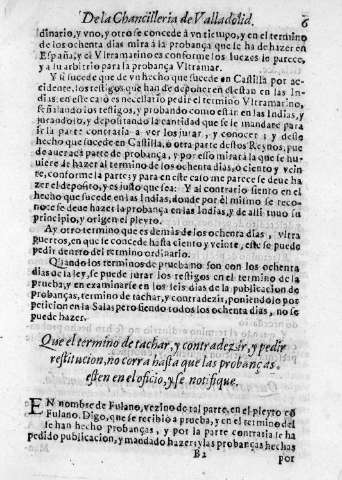 De la Chancilleria de Valladolid. 6
dinario, y vno, y otro se concede à vn tiẽpo, y en el termino
de los ochenta dias mira à la probança que se ha de hazer en
España, y el Vltramarino es conforme los Iuezes lo parece,
y a su arbitrio para la probança Vltramar.
Y si sucede que de vn hecho que sucede en Castilla por ac-
cidente, los testigos que han de deponer en el estan en las In-
dias, en este caso es necessario pedir el termino Vltramarino,
señalando los testigos, y probando como estàn en las Indias, y
jurandolo, y depositando la cantidad que se le mandare para
si la parte contraria a ver los jurar, y conocer; y deste
hecho que sucede en Castilla, ò otra parte destos Reynos, pue
de auer acà parte de probança, y por esso mirarà la que se hu-
uiere de hazer al termino de los ochenta dias, ò ciento y vein-
te, conforme la parte; y para en este caso me parece se deue ha
zer el deposito, y es justo que sea: Y al contrario siento en el
hecho que sucede en las Indias, donde por el mismo se reco-
noce se deue hazer la probança en las Indias, y de alli tuuo su
principio, y origen el pleyto.
Ay otro termino que es demàs de los ochenta dias, vltra
puertos, en que se concede hasta ciento y veinte, este se puede
pedir dentro del termino ordinario.
Quando los terminos de prueba no son con los ochenta
dias de la ley, se puede jurar los testigos en el termino de la
prueba, y en examinarse en los seis dias de la publicacion de
probanças, termino de tachar, y contradezir, poniendolo por
peticion en la Sala; pero siendo todos los ochenta dias, no se
puede hazer.
Que el termino de tachar, y contradezir, y pedir
restitucion, no corra hasta que las probanças
esten en el oficio, y se notifique.
EN nombre de Fulano, vezino de tal parte, en el pleyto cõ
Fulano. Digo, que se recibiò a prueba, y en el termino del
se han hecho probanças, y por la parte contraria se ha
pedido publicacion, y mandado hazer; y las probanças hechas
B2 por